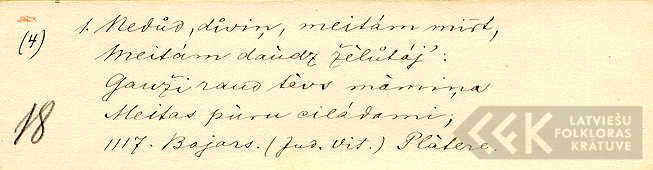 (4)
1. Nedůd, div́iņ, meitám miŕt,
Meitám daùdz žēlůtáj':
Gauži raud tēvs mámiņa
Meitas pùru ciládami,
1117. Bajars. (Jud. Vit.) Plátere.
18
LATVIEŠU
FOLKLORAS
KRĀTUVE